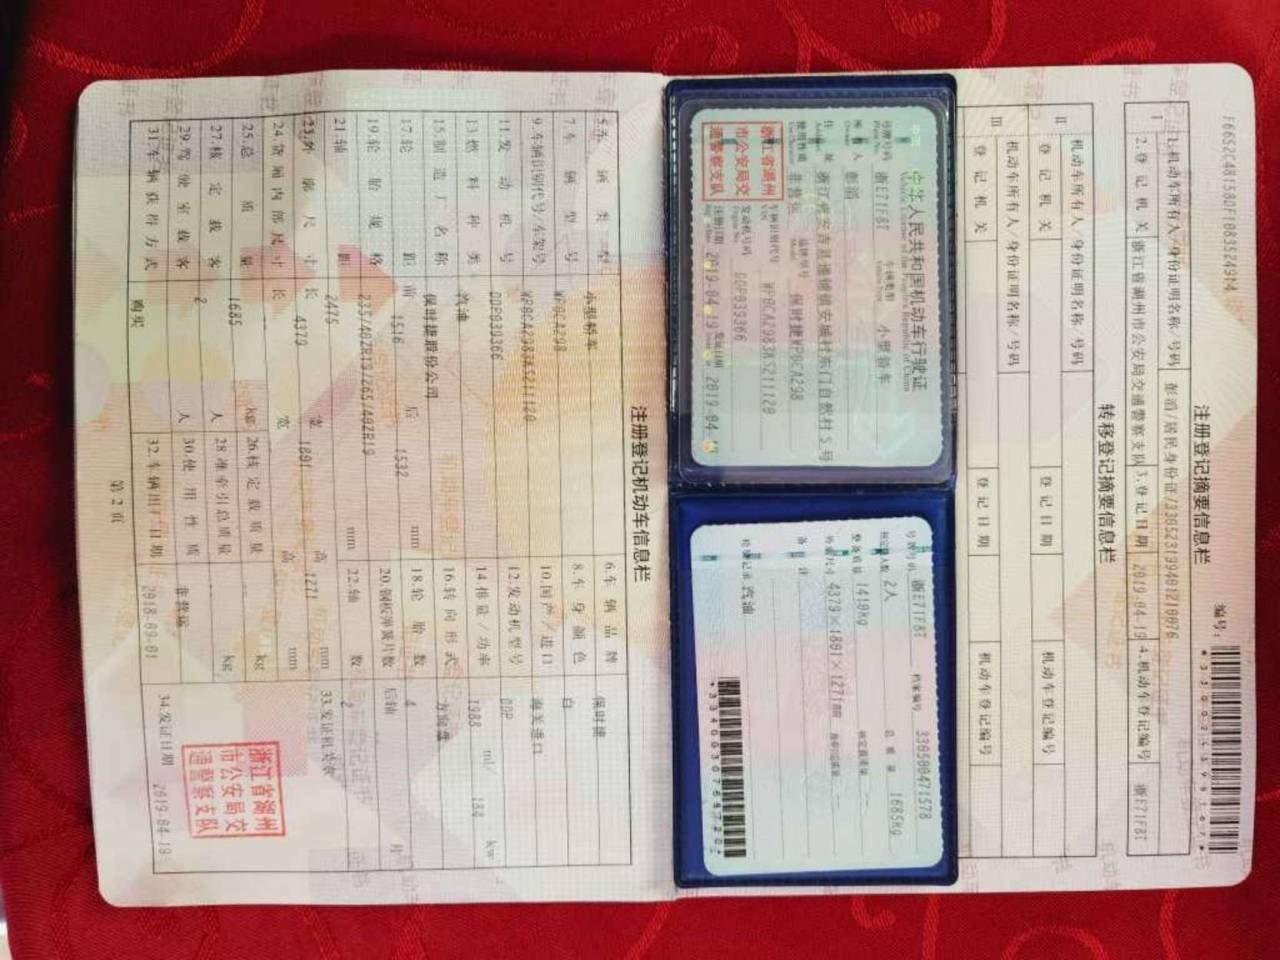 F6652C48158DF1083524914
编号:
注册登记摘要信息栏
I
1.机动车所有人/身份证明名称/号码
彭滔/居民身份证/330523199401210076
2.登记机关
浙江省湖州市公安局交通警察支队
3.登记日期
2019-04-19
4.机动车登记编号
浙E71F8T
转移登记摘要信息栏
II
机动车所有人/身份证明名称/号码
登记机关
登记日期
机动车登记编号
III
机动车所有人/身份证明名称/号码
登记机关
登记日期
机动车登记编号
中华人民共和国机动车行驶证
号牌号码 浙E71F8T 车辆类型 小型轿车
所有人 彭滔
住址 浙江省安吉县递铺镇安城村东门自然村5号
使用性质 非营运 品牌型号 保时捷WP0CA298
浙江省湖州市公安局交通警察支队
车辆识别代号 WP0CA2983KS211120
发动机号码 DDP039366
注册日期 2019-04-19 发证日期 2019-04-19
号牌号码 浙E71F8T 档案编号 330500471578
核定载人数 2人 总质量 1685kg
整备质量 1410kg 核定载质量
外廓尺寸 4379×1801×1271mm 准牵引总质量
备注
检验记录 汽油
注册登记机动车信息栏
5.车辆类型 小型轿车 6.车辆品牌 保时捷
7.车辆型号 WP0CA298 8.车身颜色 白
9.车辆识别代号/车架号 WP0CA2983KS211120 10.国产/进口 海关进口
11.发动机号 DDP039366 12.发动机型号 DDP
13.燃料种类 汽油 14.排量/功率 1988 ml/ kw
15.制造厂名称 保时捷股份公司 16.转向形式 方向盘
17.轮距 前 1516 后 1532 mm 18.轮胎数 4
19.轮胎规格 235/40ZR19/265/40ZR19 20.钢板弹簧片数 后轴 片
21.轴距 2475 mm 22.轴数 2
23.外廓尺寸 长 4379 宽 1801 高 1271 mm
24.货厢内部尺寸 长 宽 高 mm
25.总质量 1685 kg 26.核定载质量 kg
27.核定载客 2 人 28.准牵引总质量 kg
29.驾驶室载客 人 30.使用性质 非营运
31.车辆获得方式 购买 32.车辆出厂日期 2018-09-01
33.发证机关章
浙江省湖州市公安局交通警察支队
34.发证日期 2019-04-19
第2页